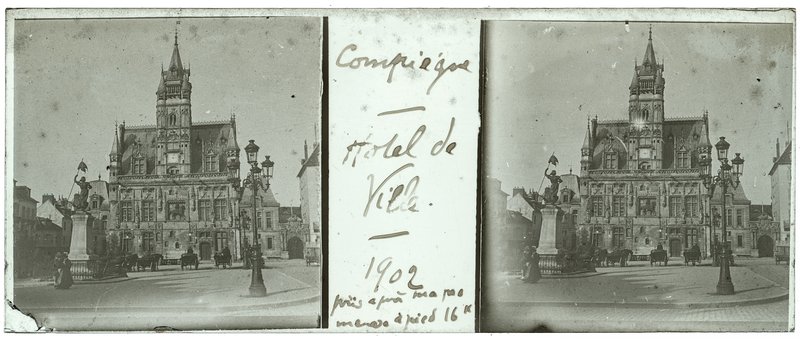 Compiègne
Hôtel de
Ville.
1902
pris après ma pro
menade à pied 16 K